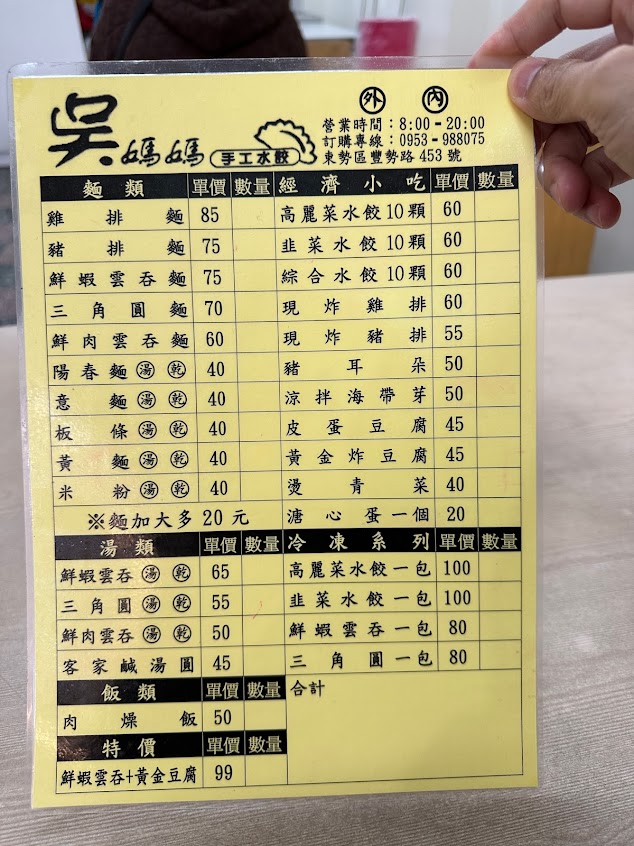 外 內
吳媽媽 手工水餃
營業時間：8:00-20:00
訂購專線：0953-988075
東勢區豐勢路453號
麵類 單價 數量 經濟小吃 單價 數量
雞排麵 85 高麗菜水餃10顆 60
豬排麵 75 韭菜水餃10顆 60
鮮蝦雲吞麵 75 綜合水餃10顆 60
三角圓麵 70 現炸雞排 60
鮮肉雲吞麵 60 現炸豬排 55
陽春麵湯乾 40 豬耳朵 50
意麵湯乾 40 涼拌海帶芽 50
板條湯乾 40 皮蛋豆腐 45
黃麵湯乾 40 黃金炸豆腐 45
米粉湯乾 40 燙青菜 40
※麵加大多20元 溏心蛋一個 20
湯類 單價 數量 冷凍系列 單價 數量
鮮蝦雲吞湯乾 65 高麗菜水餃一包 100
三角圓湯乾 55 韭菜水餃一包 100
鮮肉雲吞湯乾 50 鮮蝦雲吞一包 80
客家鹹湯圓 45 三角圓一包 80
飯類 單價 數量 合計
肉燥飯 50
特價 單價 數量
鮮蝦雲吞+黃金豆腐 99